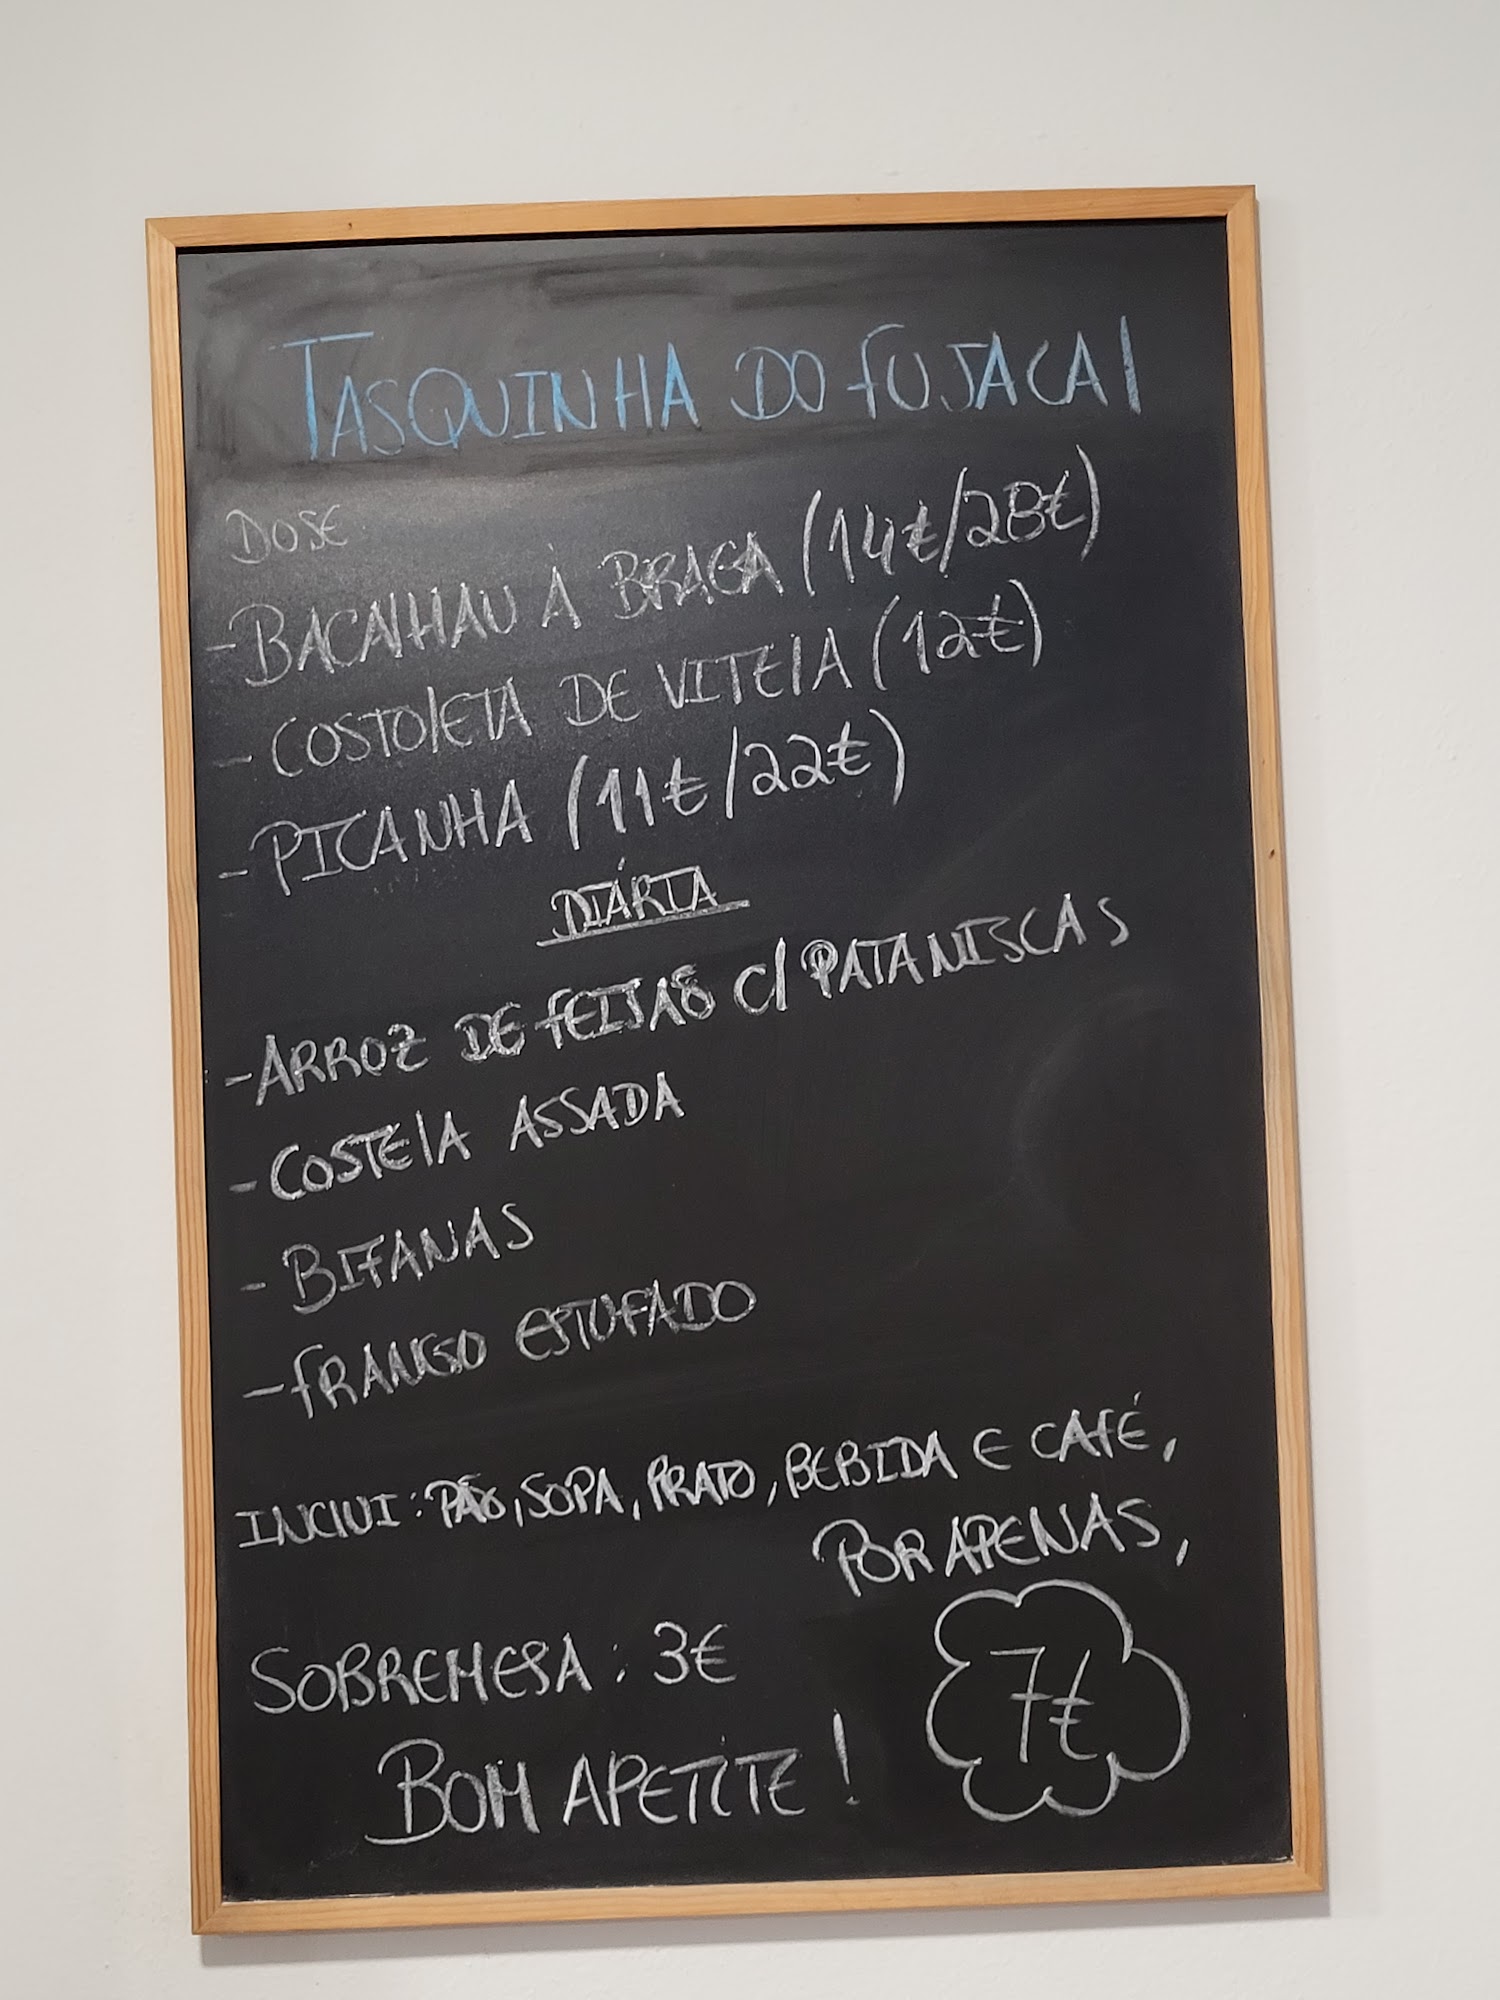 TASQUINHA DO FUJACAL
DOSE
- BACALHAU À BRAGA (14€/28€)
- COSTOLETA DE VITELA (12€)
- PICANHA (11€/22€)
DIÁRIA
- ARROZ DE FEIJÃO C/ PATANISCAS
- COSTELA ASSADA
- BIFANAS
- FRANGO ESTUFADO
INCLUI: PÃO, SOPA, PRATO, BEBIDA E CAFÉ,
POR APENAS,
7€
SOBREMESA: 3€
BOM APETITE!